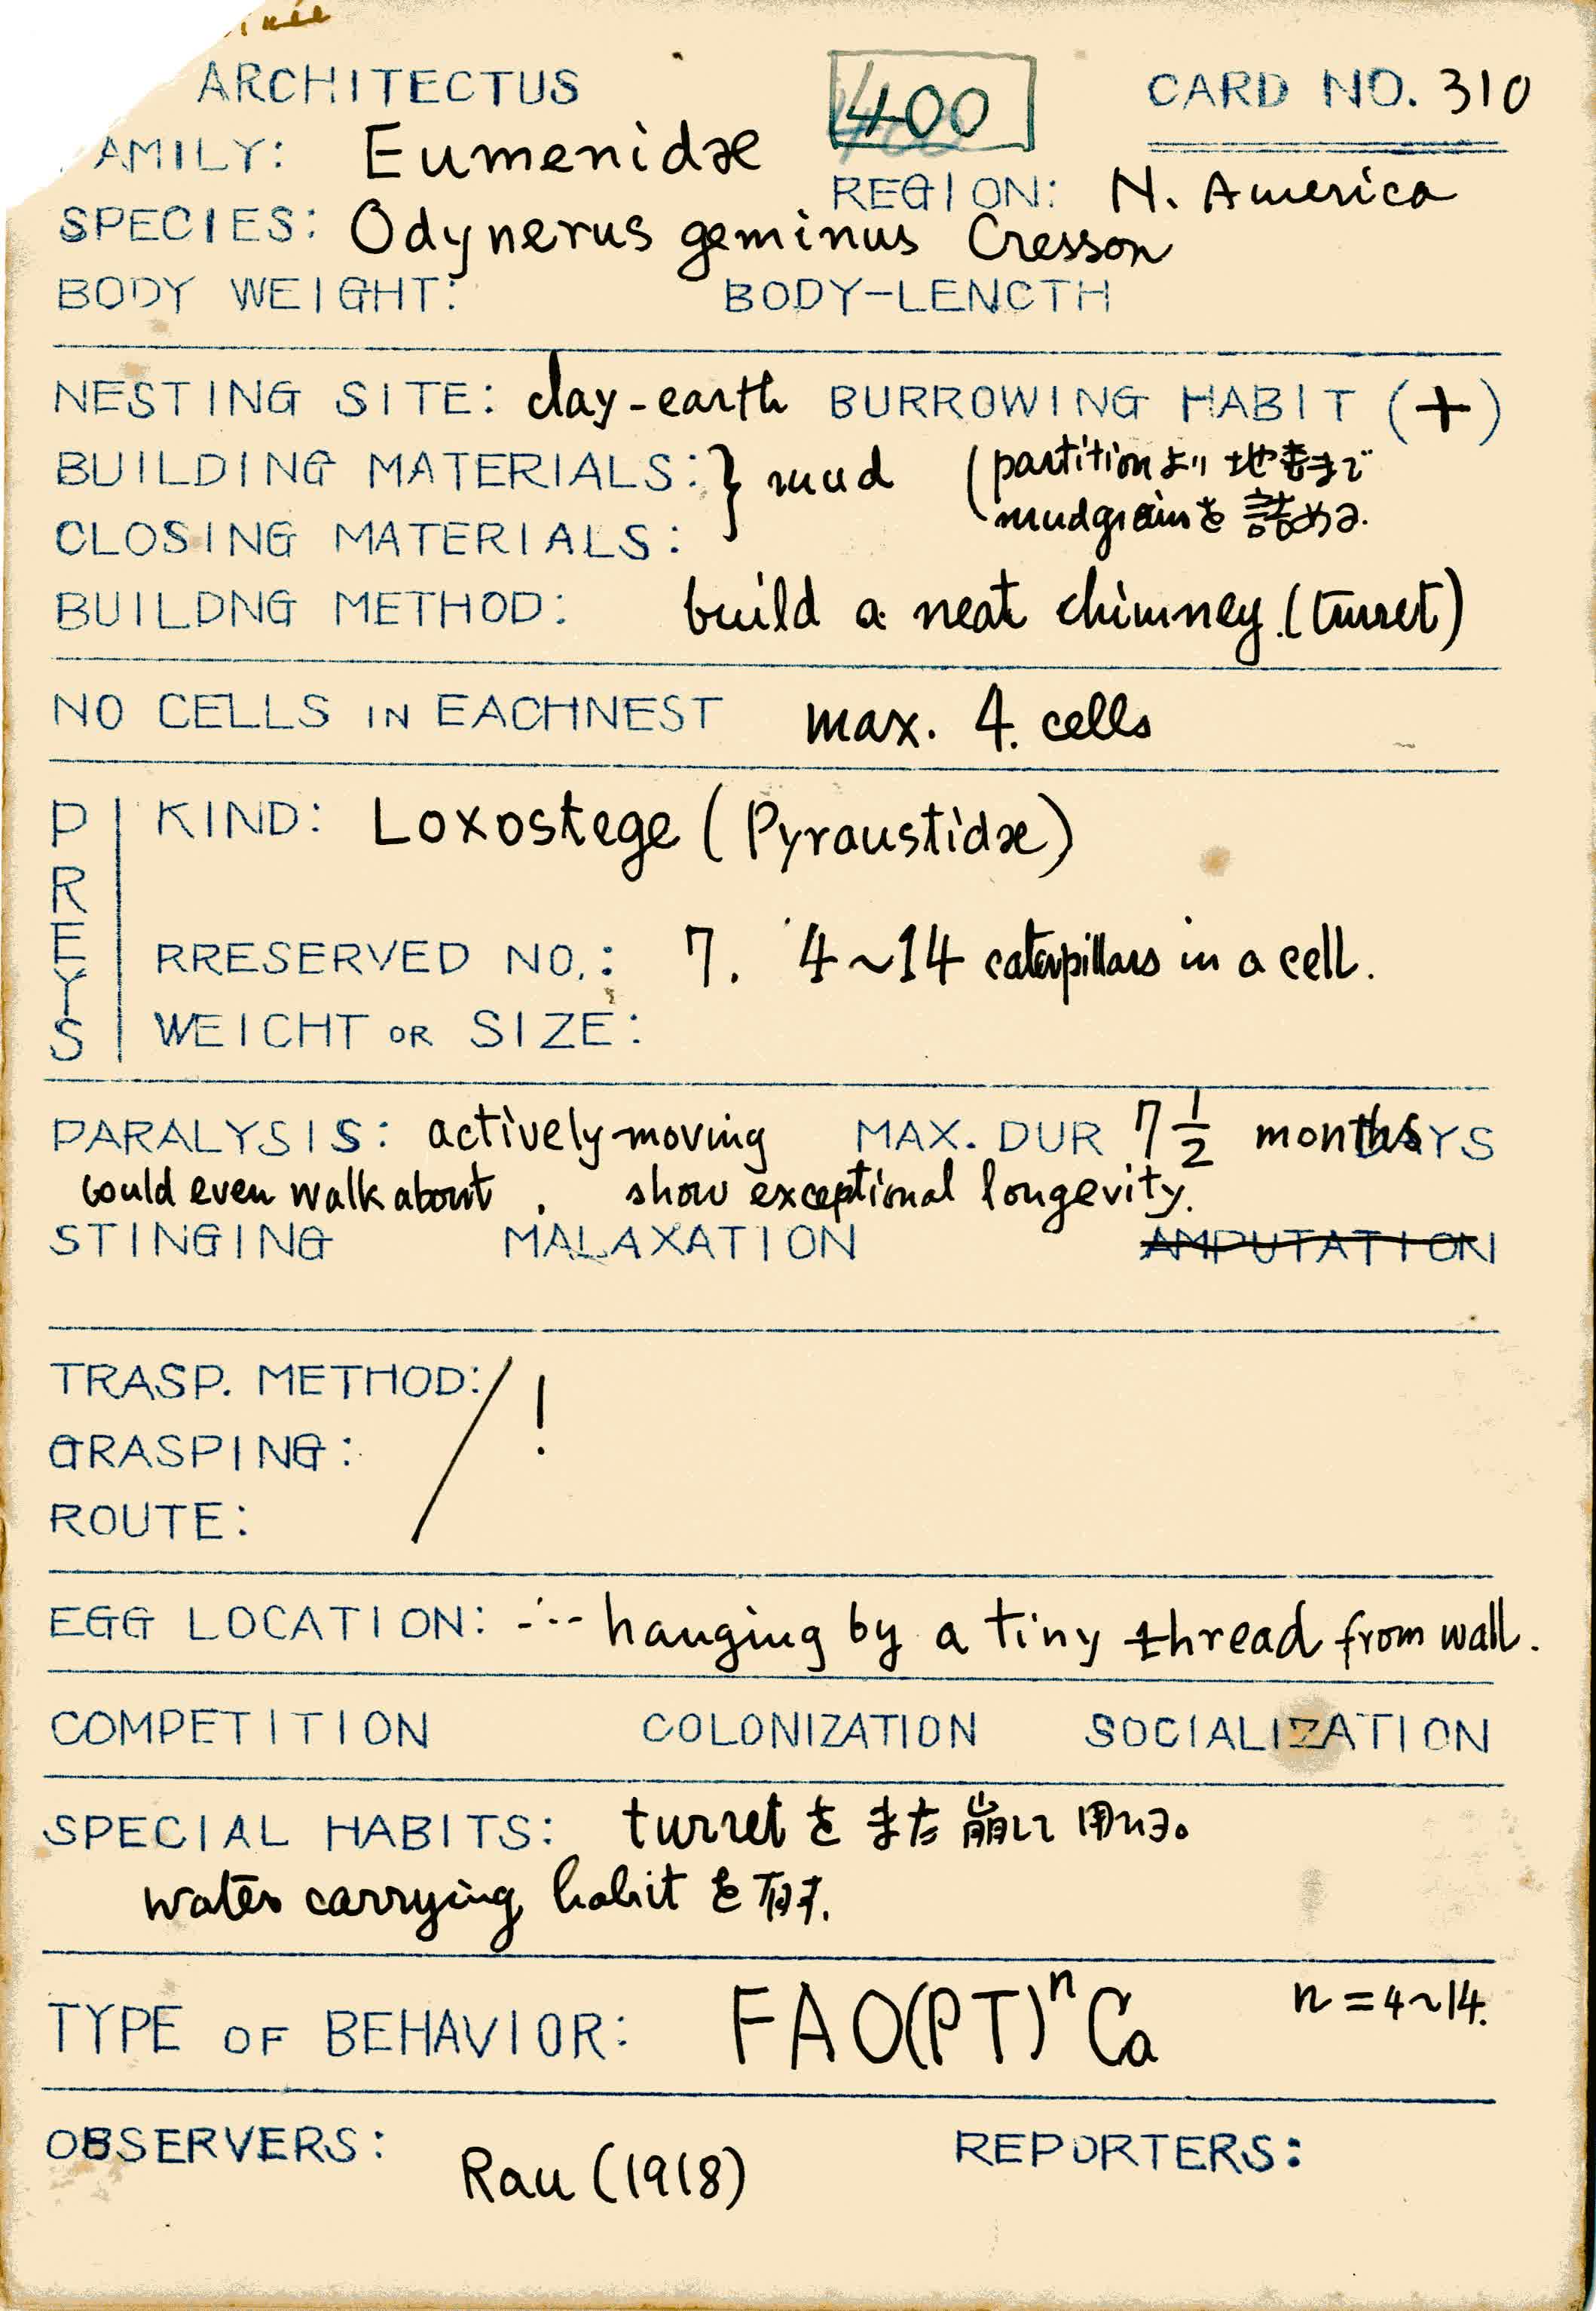 ARCHITECTUS 400 CARD NO. 310
AMILY: Eumenidæ
REGION: N. America
SPECIES: Odynerus geminus Cresson
BODY WEIGHT: BODY-LENCTH
NESTING SITE: clay-earth BURROWING HABIT (+)
BUILDING MATERIALS: } mud (partitionより地表まで
mudgrainsを詰める.
CLOSING MATERIALS:
BUILDNG METHOD: build a neat chimney. (turret)
NO CELLS IN EACHNEST max. 4. cells
PREYS
KIND: Loxostege (Pyraustidæ)
RRESERVED NO.: 7. 4~14 caterpillars in a cell.
WEICHT OR SIZE:
PARALYSIS: actively moving MAX. DUR 7 1/2 months DAYS
could even walk about, show exceptional longevity.
STINGING MALAXATION AMPUTATION
TRASP. METHOD: / !
GRASPING:
ROUTE:
EGG LOCATION: hanging by a tiny thread from wall.
COMPETITION COLONIZATION SOCIALIZATION
SPECIAL HABITS: turret を また 崩して 用いる。
water carrying habit を 有す.
TYPE OF BEHAVIOR: FAO(PT)ⁿCa n=4~14.
OBSERVERS: Rau (1918) REPORTERS: